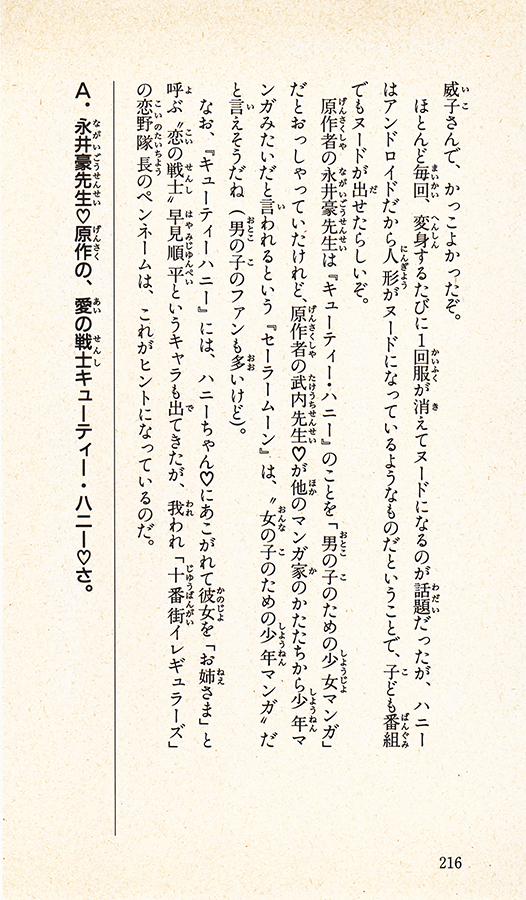 威子さんで、かっこよかったぞ。
ほとんど毎回、変身するたびに1回服が消えてヌードになるのが話題だったが、ハニー
はアンドロイドだから人形がヌードになっているようなものだということで、子ども番組
でもヌードが出せたらしいぞ。
原作者の永井豪先生は『キューティー・ハニー』のことを「男の子のための少女マンガ」
だとおっしゃっていたけれど、原作者の武内先生♡が他のマンガ家のかたたちから少年マ
ンガみたいだと言われるという『セーラームーン』は、〝女の子のための少年マンガ〟だ
と言えそうだね（男の子のファンも多いけど）。
なお、『キューティーハニー』には、ハニーちゃん♡にあこがれて彼女を「お姉さま」と
呼ぶ〝恋の戦士〟早見順平というキャラも出てきたが、我われ「十番街イレギュラーズ」
の恋野隊長のペンネームは、これがヒントになっているのだ。
A・永井豪先生♡原作の、愛の戦士キューティー・ハニー♡さ。
216